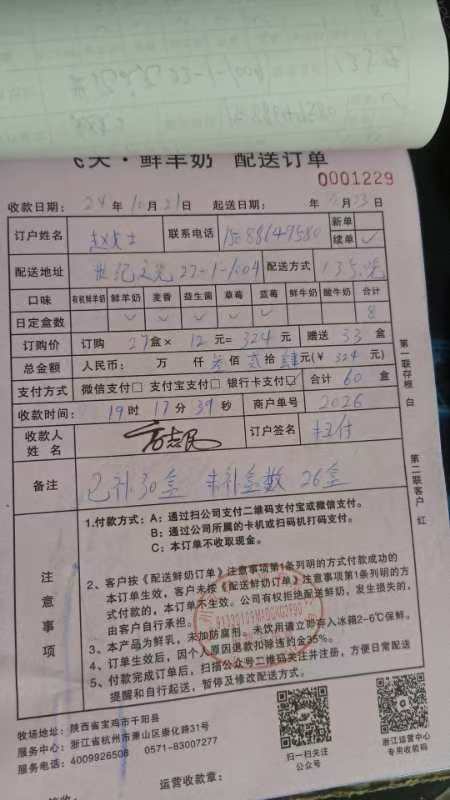 天·鲜羊奶 配送订单
0001229
收款日期: 24 年 10 月 21 日 起送日期: 年 月 23 日
订户姓名 赵女士 联系电话 新单
续单 ✓
配送地址 世纪文苑 27-1-1004 配送方式 135送
口味 有机鲜羊奶 鲜羊奶 麦香 益生菌 草莓 蓝莓 鲜牛奶 酸牛奶 合计
日定盒数 ✓ ✓ ✓ ✓ ✓ 8
订购价 订购 27 盒× 12 元= 324 元 赠送 33 盒
总金额 人民币: 万 仟 叁 佰 贰 拾 肆 元(¥ 324 元)
支付方式 微信支付□ 支付宝支付□ 银行卡支付☑ 合计 60 盒
收款时间: 19 时 17 分 39 秒 商户单号 2026
收款人姓名 订户签名
备注 已补30盒 未补盒数 26盒
注意事项
1.付款方式: A: 通过扫公司支付二维码支付宝或微信支付。
B: 通过公司所属的卡机或扫码机打码支付。
C: 本订单不收取现金。
2、客户按《配送鲜奶订单》注意事项第1条列明的方式付款成功的
本订单生效,客户未按《配送鲜奶订单》注意事项第1条列明的方
式付款的,本订单不生效。公司有权拒绝配送鲜奶,发生损失的,
由客户自行承担。
3、本产品为鲜乳,未加防腐剂,未饮用请立即存入冰箱2-6℃保鲜。
4、订单生效后,因个人原因退款扣除违约金35%。
5、付款完成订单后,扫描公众号二维码关注并注册,方便日常配送
提醒和自行起送,暂停及修改配送方式。
第一联存根 白
第二联客户 红
牧场地址: 陕西省宝鸡市千阳县
服务中心: 浙江省杭州市萧山区康化路31号
服务电话: 4009926508 0571-83007277
扫一扫关注
公众号
浙江运营中心
专用收款码
运营收款章: